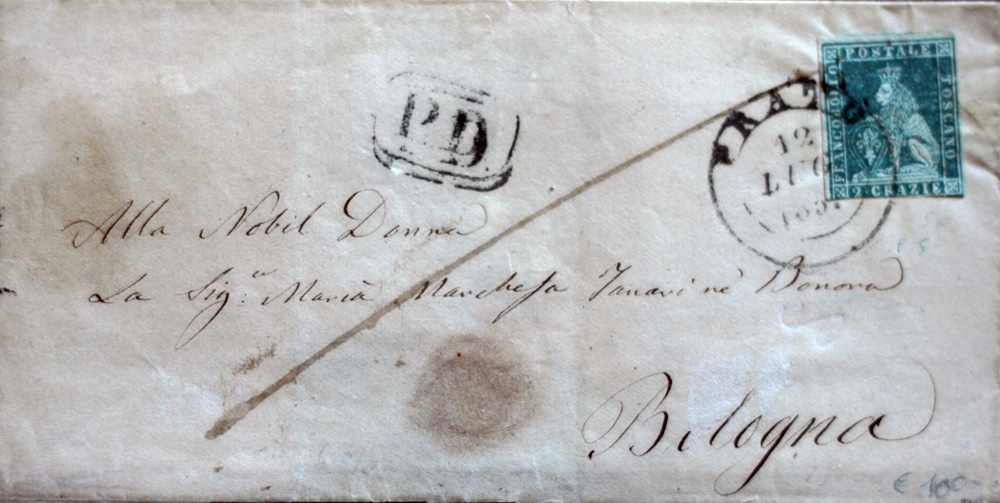 P.D.
FRANCOBOLLO
POSTALE
TOSCANO
2 CRAZIE
PRATO
12
LUG
185
Alla Nobil Donna
La Sig.ra Maria Marchesa Tanari nè Bonora
Bologna
P S
€ 100-